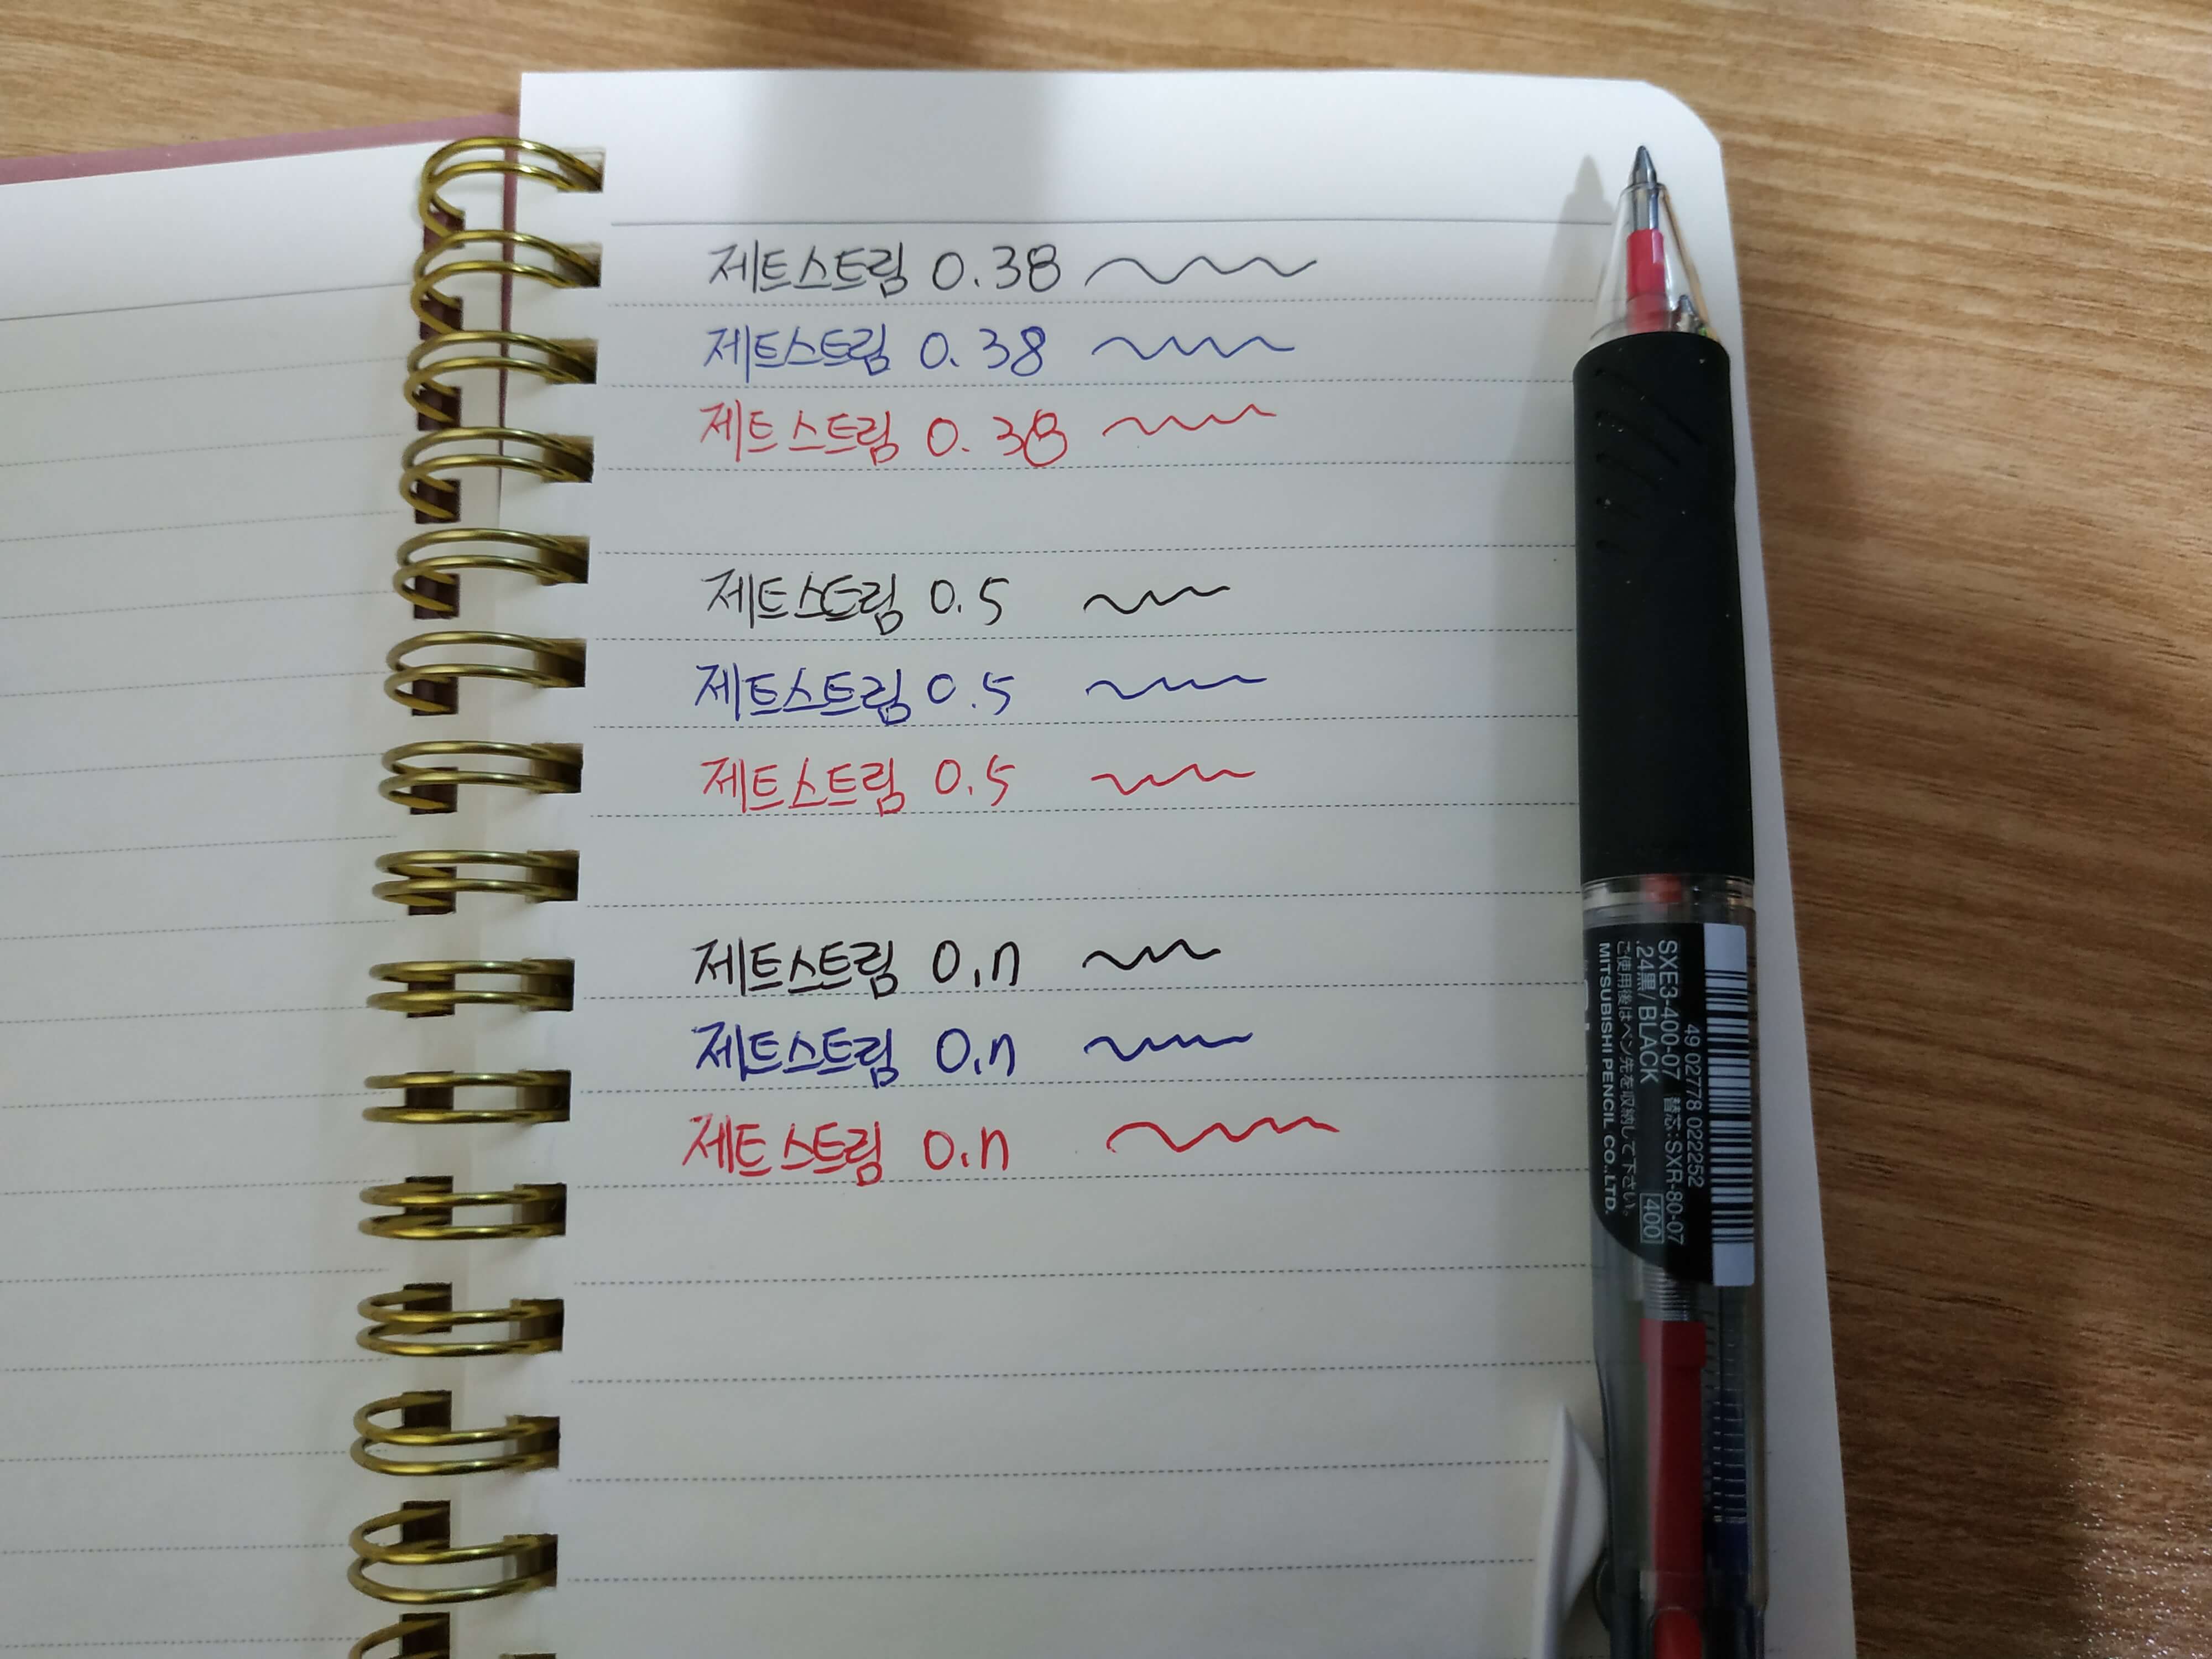 제트스트림 0.38
제트스트림 0.38
제트스트림 0.38
제트스트림 0.5
제트스트림 0.5
제트스트림 0.5
제트스트림 0.7
제트스트림 0.7
제트스트림 0.7
49 02778 022252
SXE3-400-07 替芯:SXR-80-07
.24黒/BLACK 400
ご使用後はペン先を収納して下さい。
MITSUBISHI PENCIL CO.,LTD.